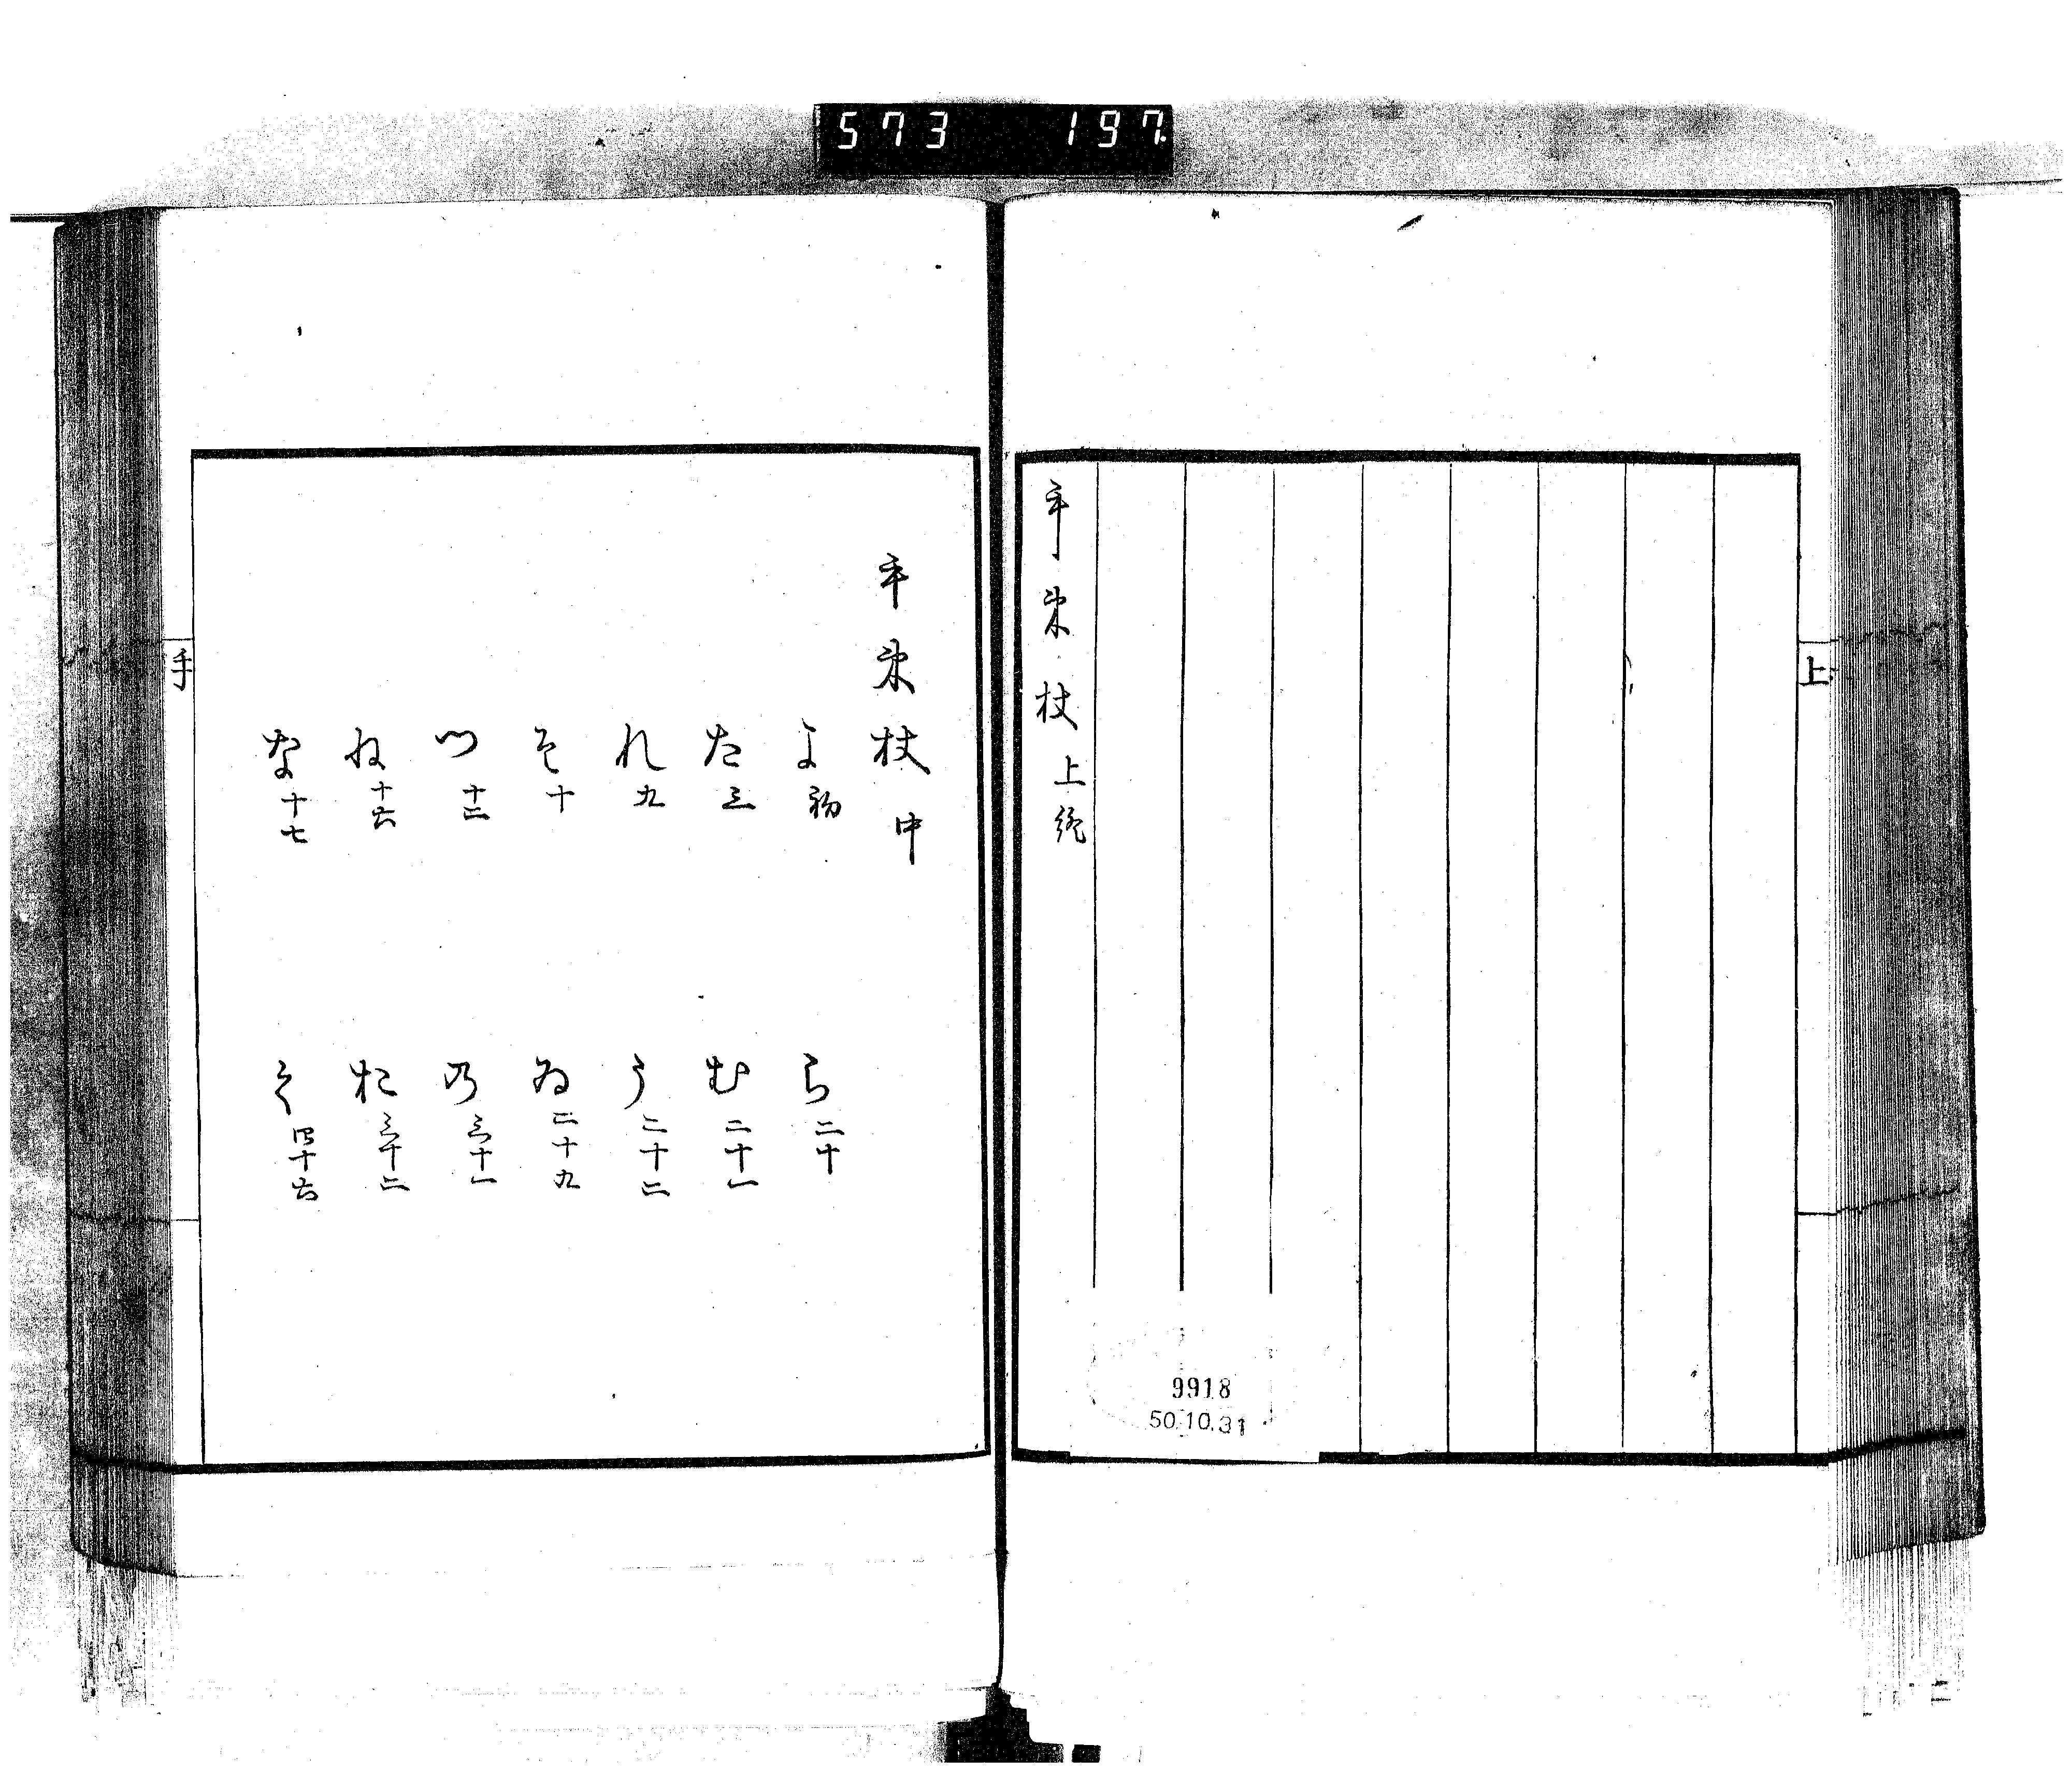 573 197
上
手束杖上終
9918
50.10.31
手束杖中
よ初
た三
れ九
そ十
つ十二
ね十六
な十七
ら二十
む二十一
う二十二
ゐ二十九
の三十一
お三十二
く四十六
手